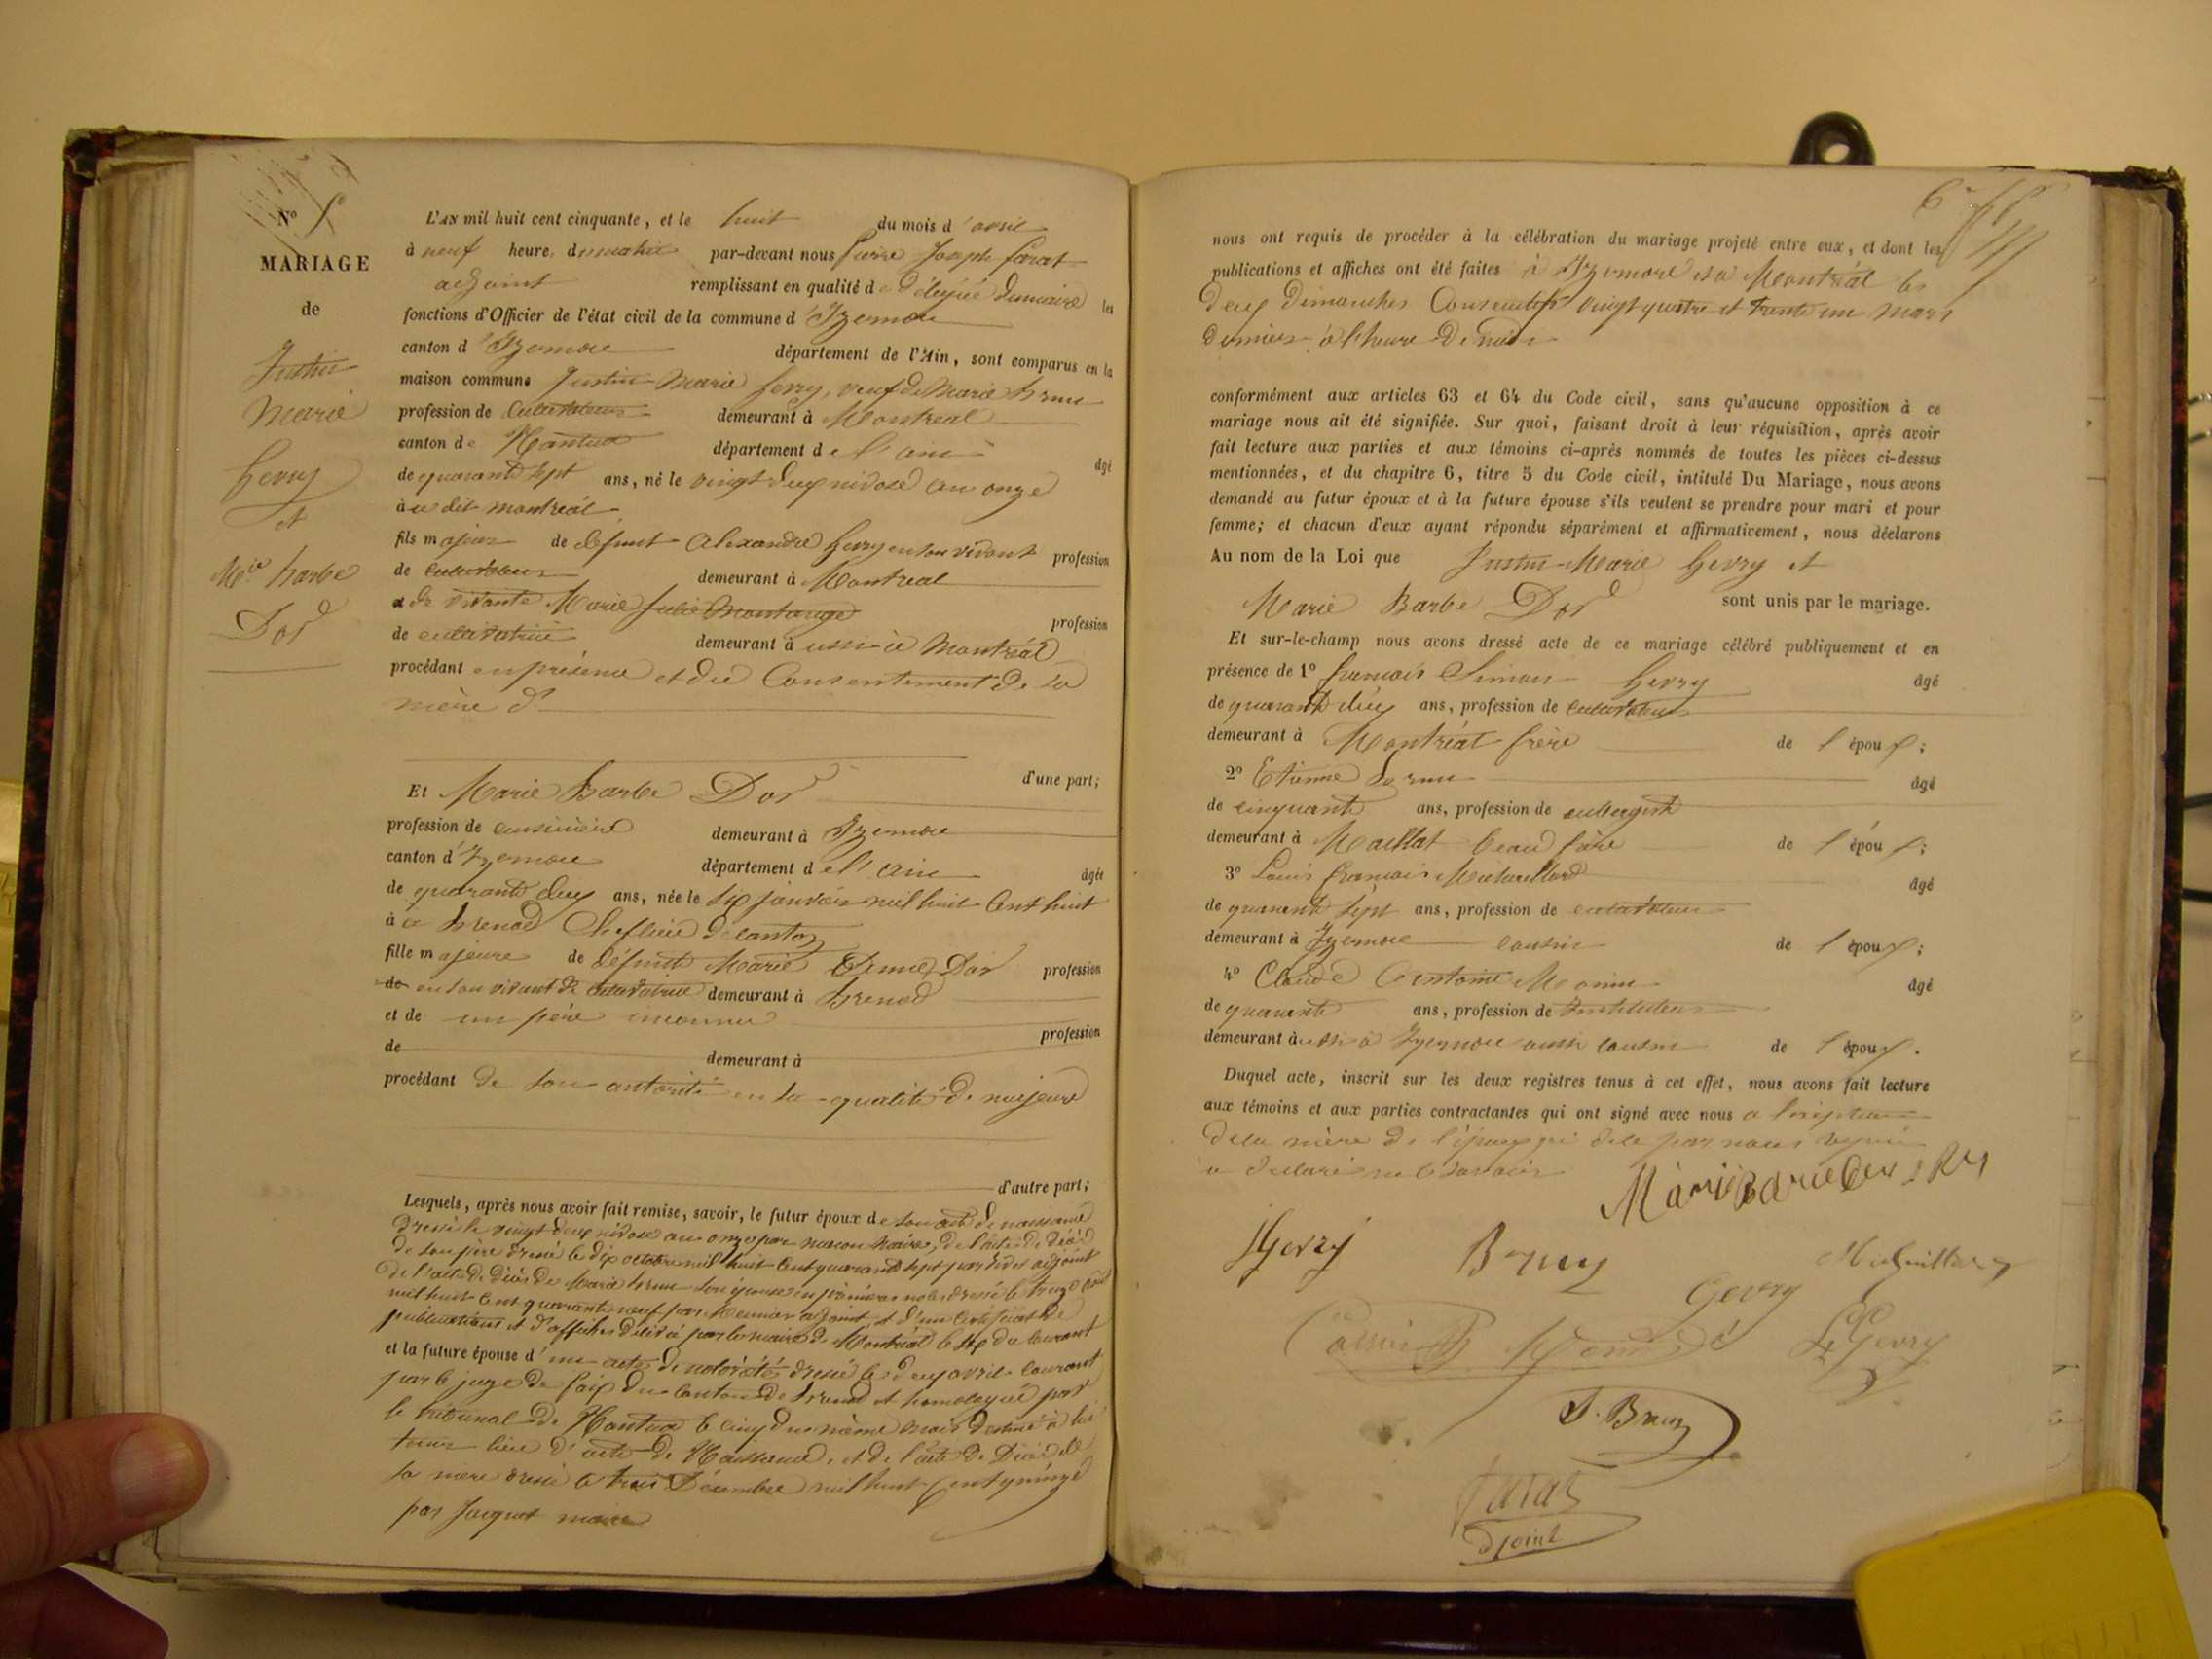 N° 5
MARIAGE
de
Justin
Marie
Gerry
et
M.ie Barbe
Dor
L'AN mil huit cent cinquante, et le huit du mois d'avril
à neuf heure. du matin par-devant nous Pierre Joseph
adjoint remplissant en qualité de délégué du maire les
fonctions d'Officier de l'état civil de la commune d'Izernore
canton d'Izernore département de l'Ain, sont comparus en la
maison commune Justin Marie Gerry, veuf de Marie Brun
profession de Cultivateur demeurant à Montreal
canton de Nantua département de l'ain âgé
de quarante sept ans, né le vingt deux nivose an onze
à u dit montréal
fils majeur de défunt Alexandre Gerry en son vivant profession
de cultivateur demeurant à Montreal
et de vivante Marie Julie Montange profession
de cultivatrice demeurant à ussi à Montréal
procédant en présence et du Consentement de sa
mère d'
d'une part;
Et Marie Barbe Dor
profession de cuisinière demeurant à Izernore
canton d'Izernore département de l'ain âgée
de quarante deux ans, née le six janvier mil huit Cent huit
à a Brenod Chef lieu de canton
fille majeure de défunte Marie Dor profession
de en son vivant de cultivatrice demeurant à Brenod
et de un père inconnu profession
de demeurant à
procédant de son autorité en sa qualité de majeure
d'autre part;
Lesquels, après nous avoir fait remise, savoir, le futur époux de son acte de naissance
dressé le vingt deux nivose an onze par maire, de l'acte de décès
de son père dressé le dix octobre mil huit Cent quarante sept par adjoint
de l'acte de décès de Marie Brun son épouse en premières noces dressé le treize
mil huit Cent quarante neuf par Meunier adjoint, et d'un Certificat de
publications et d'affiches délivré par le maire de Montréal le sept du Courant
et la future épouse d'un acte de notoriété dressé le deux avril Courant
par le juge de Paix du Canton de Brenod et homologué par
le tribunal de Nantua le cinq du même mois destiné à lui
tenir lieu d'acte de Naissance, et de l'acte de Décès de
sa mère dressé le trois Décembre mil huit Cent quinze
par Jacquet maire
nous ont requis de procéder à la célébration du mariage projeté entre eux, et dont les
publications et affiches ont été faites à Izernore et à Montréal les
deux Dimanches Consecutifs vingt quatre et trente un mars
dernier à l'heure de midi
conformément aux articles 63 et 64 du Code civil, sans qu'aucune opposition à ce
mariage nous ait été signifiée. Sur quoi, faisant droit à leur réquisition, après avoir
fait lecture aux parties et aux témoins ci-après nommés de toutes les pièces ci-dessus
mentionnées, et du chapitre 6, titre 5 du Code civil, intitulé Du Mariage, nous avons
demandé au futur époux et à la future épouse s'ils veulent se prendre pour mari et pour
femme; et chacun d'eux ayant répondu séparément et affirmativement, nous déclarons
Au nom de la Loi que Justin Marie Gerry et
Marie Barbe Dor sont unis par le mariage.
Et sur-le-champ nous avons dressé acte de ce mariage célébré publiquement et en
présence de 1° françois Simon Gerry âgé
de quarante deux ans, profession de cultivateur
demeurant à Montréal frère de l'époux;
2° Etienne Brun âgé
de cinquante ans, profession de aubergiste
demeurant à Maillat beau frère de l'époux;
3° Louis françois Michaillard âgé
de quarante sept ans, profession de cultivateur
demeurant à Izernore cousin de l'époux;
4° Claude Antoine Monin âgé
de quarante ans, profession de Instituteur
demeurant à ussi à Izernore aussi cousin de l'époux.
Duquel acte, inscrit sur les deux registres tenus à cet effet, nous avons fait lecture
aux témoins et aux parties contractantes qui ont signé avec nous a l'exeption
de la mère de l'époux qui de ce par nous requise
a déclaré ne le savoir
Gerry
Brun
Gerry
Gerry
J. Brun
adjoint